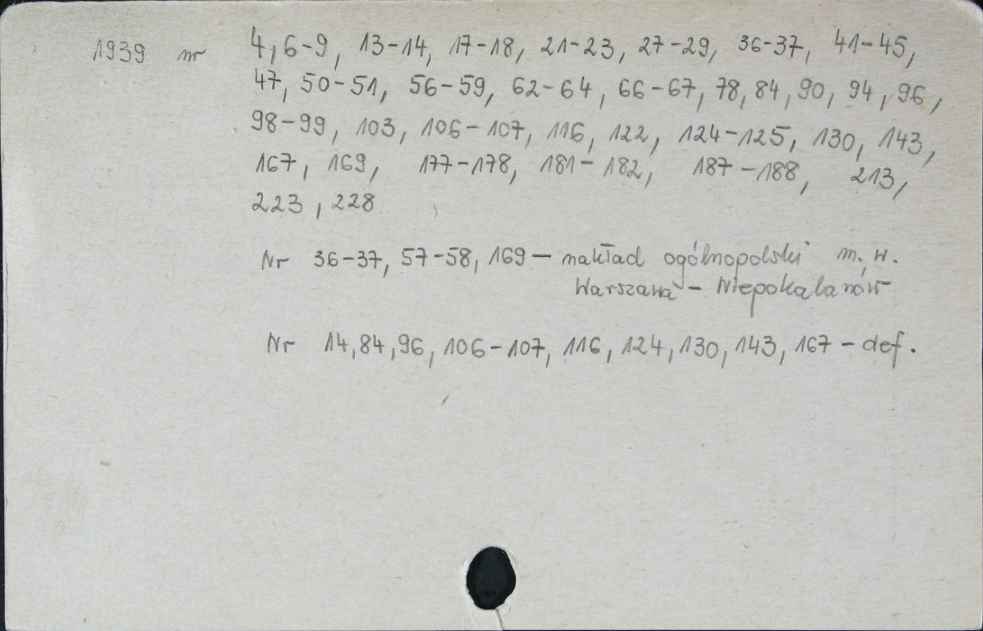 1939 nr 4, 6-9, 13-14, 17-18, 21-23, 27-29, 36-37, 41-45,
47, 50-51, 56-59, 62-64, 66-67, 78, 84, 90, 94, 96,
98-99, 103, 106-107, 116, 122, 124-125, 130, 143,
167, 169, 177-178, 181-182, 187-188, 213,
223, 228
Nr 36-37, 57-58, 169 - nakład ogólnopolski m. w.
Warszawa - Niepokalanów
Nr 14, 84, 96, 106-107, 116, 124, 130, 143, 167 - def.